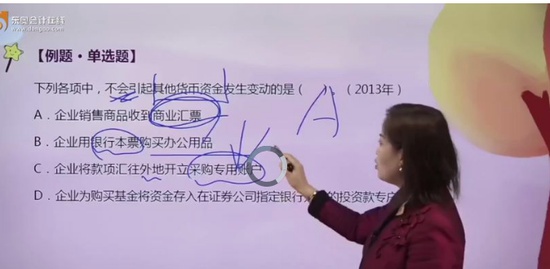 东奥会计在线
www.dongao.com
【例题·单选题】
下列各项中，不会引起其他货币资金发生变动的是（ ）（2013年）
A．企业销售商品收到商业汇票
B．企业用银行本票购买办公用品
C．企业将款项汇往外地开立采购专用账户
D．企业为购买基金将资金存入在证券公司指定银行 的投资款专户
A